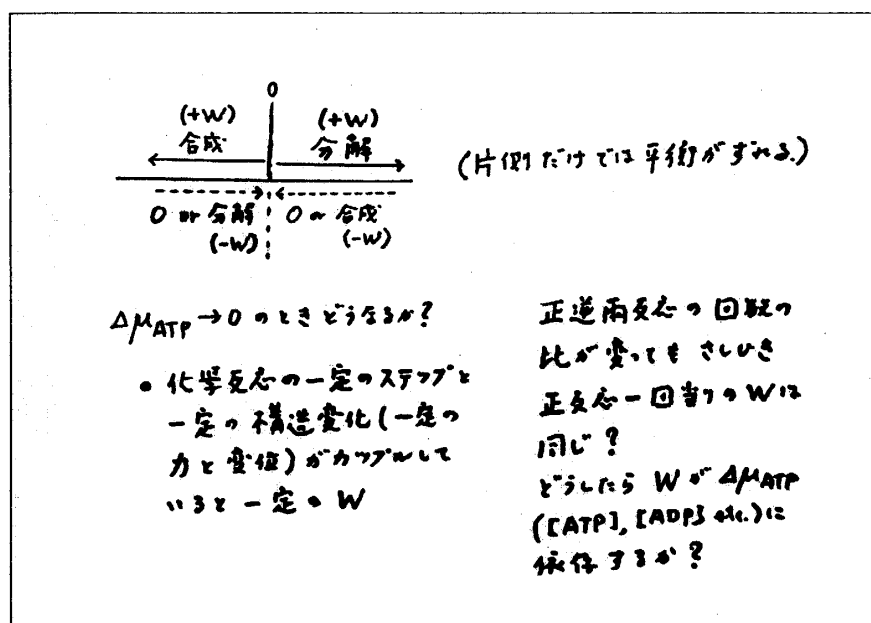 0
(+W) (+W)
合成 分解
(片側だけでは平衡がずれる.)
0 or 分解 0 or 合成
(-W) (-W)
ΔμATP→0 のときどうなるか?
• 化学反応の一定のステップと
一定の構造変化(一定の
力と変位)がカップルして
いると一定のW
正逆両反応の回数の
比が変ってもさしひき
正反応一回当りのWは
同じ?
どうしたら W が ΔμATP
([ATP], [ADP] etc.)に
依存するか?